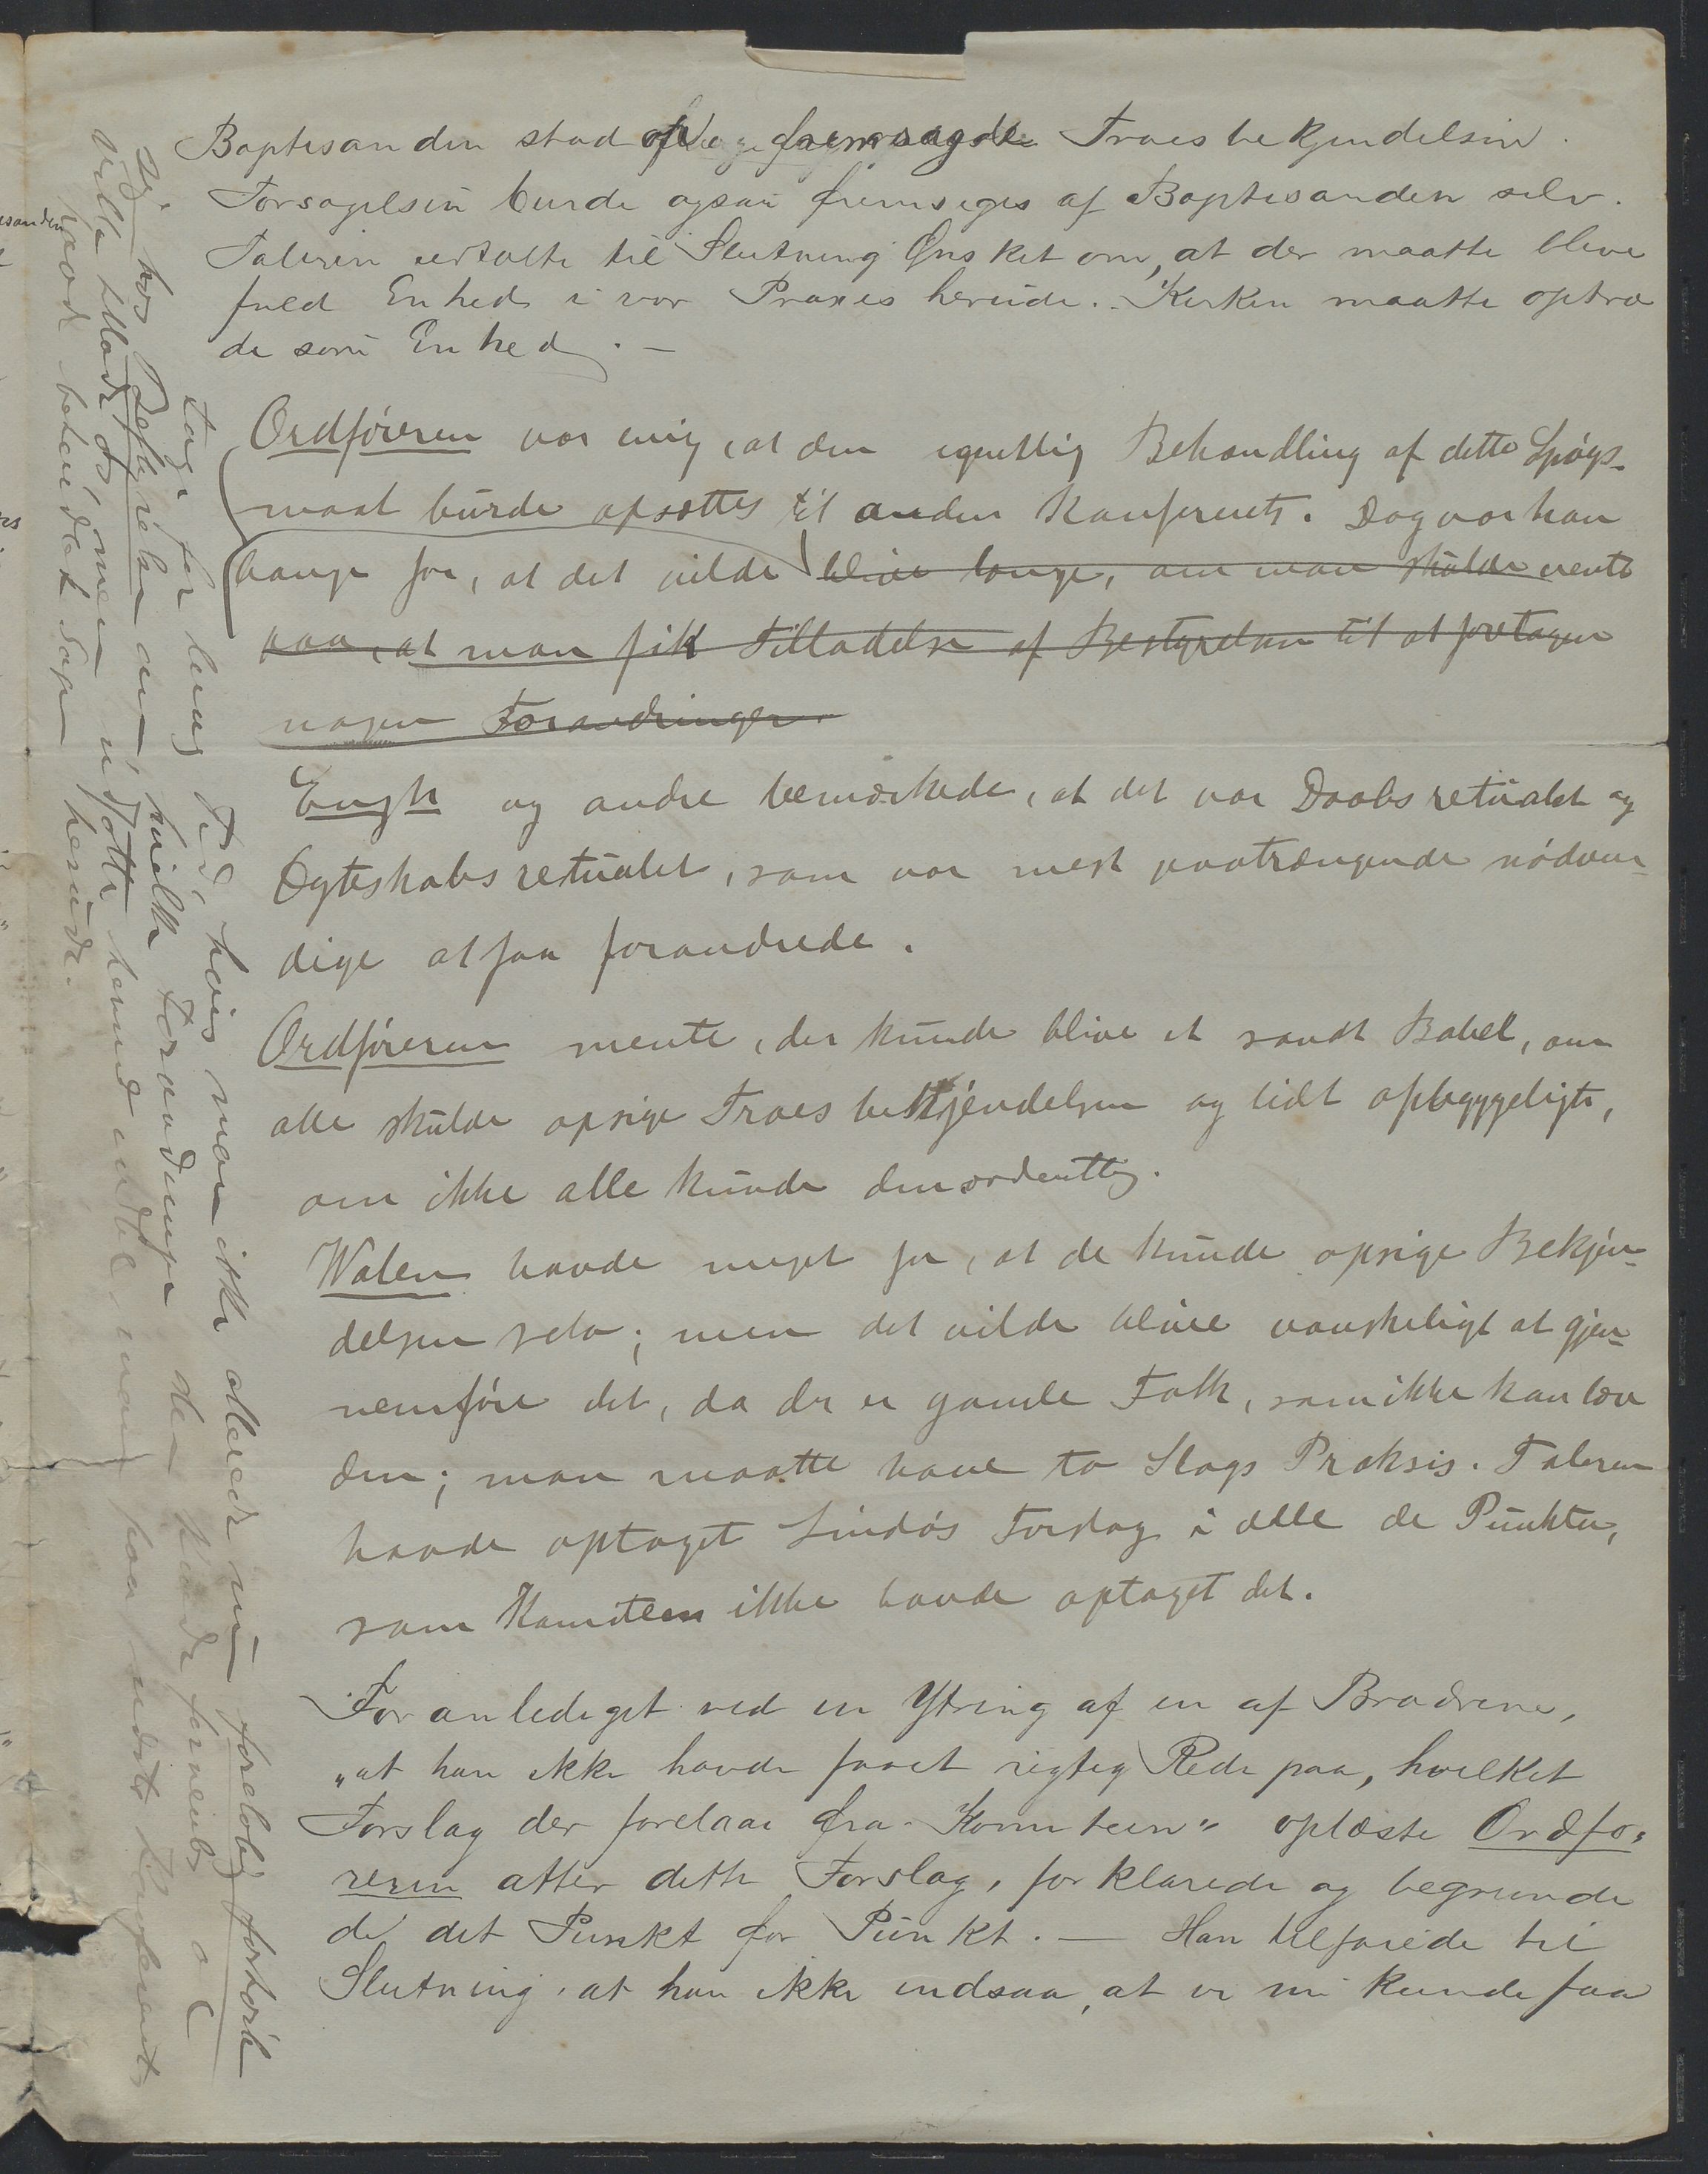 Baptisanden stod op og fremsagde Troesbekjendelsen.
Forsagelsen burde ogsaa fremsiges af Baptisanden selv.
Taleren udtalte til Slutning Ønsket om, at der maatte blive
fuld Enhed i vor Praxis herude. Kirken maatte optræ
de som Enhed. —
Ordføreren var enig, at den egentlig Behandling af dette Spøgs-
maal burde opsættes til anden Konferents. Dog var han
bange for, at det vilde blive længe, om man skulde vente
paa, at man fik Tilladelse af Bestyrelsen til at foretagen
nogen Forandringer.
Engh og andre bemærkede, at det var Daabsretualet og
Ægteskabsretualet, som var mest paatrængende nødven-
dige at faa forandrede.
Ordføreren mente, der kunde blive et sandt Babel, om
alle skulde opsige Troesbekjendelsen og lidt opbyggeligt,
om ikke alle kunde den ordentlig.
Walen havde meget for, at de kunde opsige Bekjen-
delsen selv; men det vilde blive vanskeligt at gjen-
nemføre det, da der er gamle Folk, som ikke kan lære
den; man maatte have to Slags Praksis. Taleren
havde optaget Lindøs Forslag i alle de Punkter,
som Komiteen ikke havde optaget det.
Foranlediget ved en Ytring af en af Brødrene,
„at han ikke havde faaet rigtig Rede paa, hvilket
Forslag der forelaa fra Komiteen" oplæste Ordfø-
reren atter dette Forslag, forklarede og begrunde
de det Punkt for Punkt. — Han tilføiede til
Slutning, at han ikke indsaa, at vi nu kunde faa
tage for lang Tid, hvis man ikke allerede nu foreløbig forhørte
sig hos Bestyrelsen om, hvilke Forandringer den havde fornuft af
ville tillade os, men udsatte hermed indtil man paa næste Konferents
havde behandlet Sagen herude.